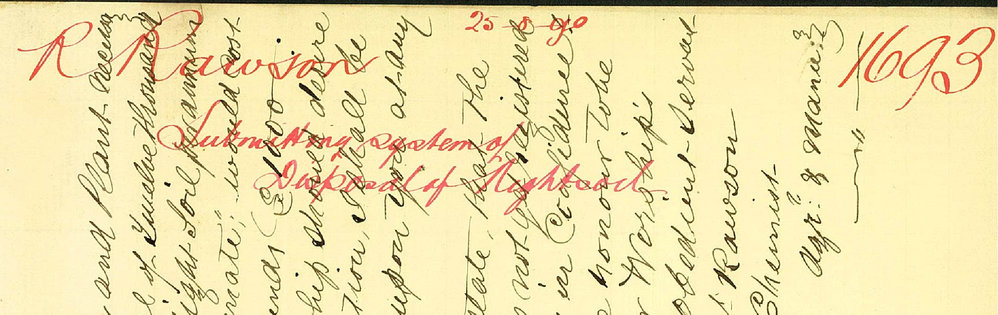 R Rawson
25-8-90
1693
Submitting system of
Disposal of Nightsoil
and Plant necess
l of Twelve thousand
ight Soil per annum
nate; would cost
ends (£1000
hip should desire
tion, I shall be
upon you at any
state, that the
not get registered
in Confidence
honour to be
Worship's
obedient servant
Rawson
Chemist
Agr: & Manr: